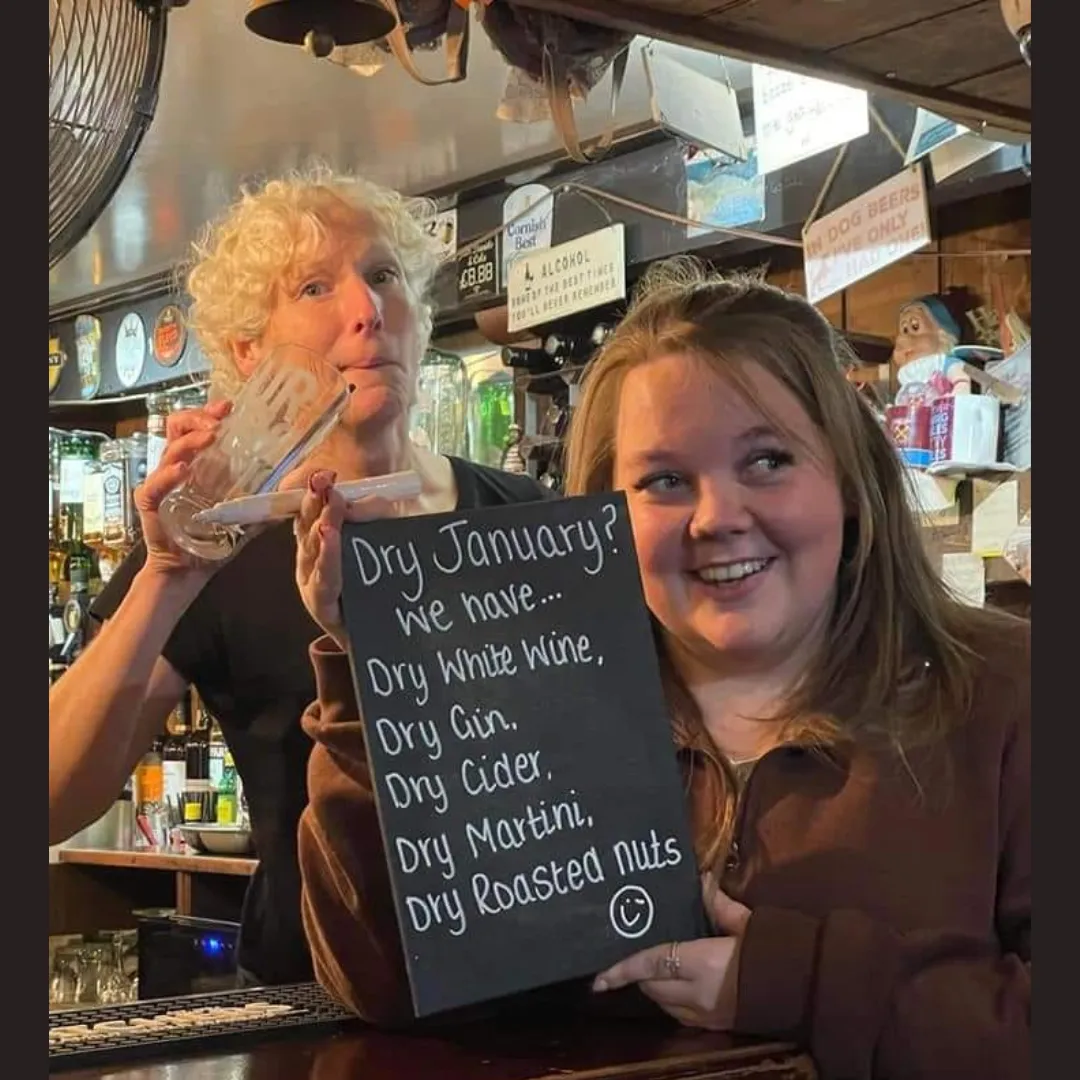 Cornish
Best
£8.88
ALCOHOL
SOME OF THE BEST TIMES
YOU'LL NEVER REMEMBER
DOG BEERS
ONLY
HAD ONE!
Dry January?
we have...
Dry White Wine,
Dry Gin,
Dry Cider,
Dry Martini,
Dry Roasted nuts